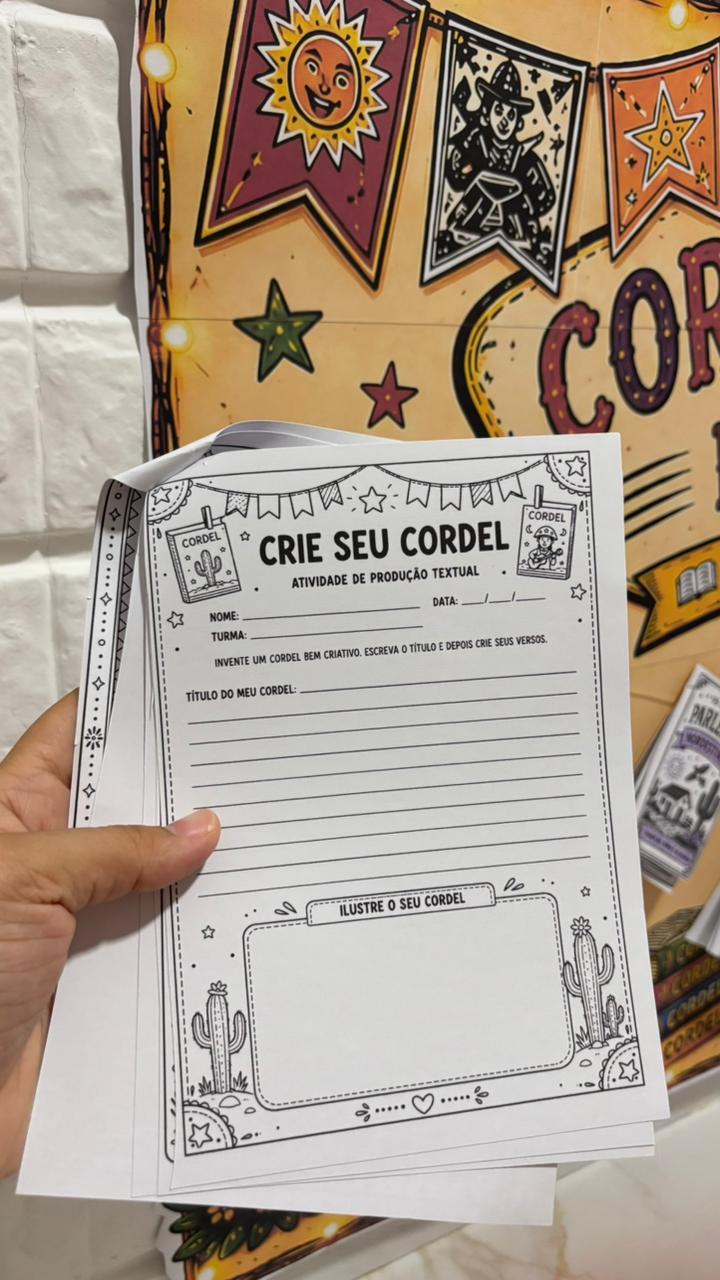 COR
CORDEL
CORDEL
CRIE SEU CORDEL
ATIVIDADE DE PRODUÇÃO TEXTUAL
NOME:
DATA: ___/___/___
TURMA:
INVENTE UM CORDEL BEM CRIATIVO. ESCREVA O TÍTULO E DEPOIS CRIE SEUS VERSOS.
TÍTULO DO MEU CORDEL:
ILUSTRE O SEU CORDEL
CORDE
CORDE
CORDE